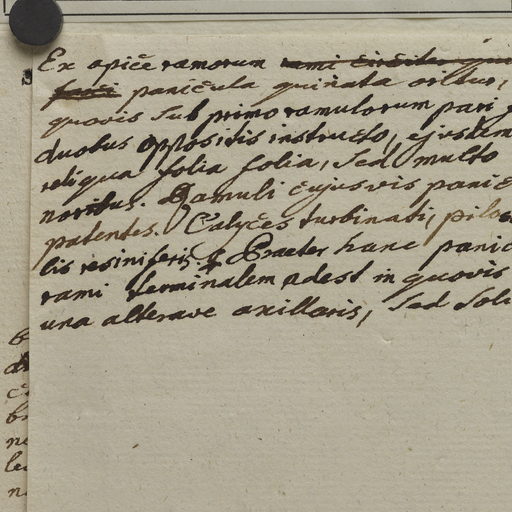 Ex apice ramorum rami circiter
panicula quinata oritur,
quovis sub primo ramulorum pari
duobus oppositis instructo, ejusdem
reliqua folia folia, sed multo
noribus. Ramuli cujusvis panic
patentes. Calyces turbinati, pilo
lis resiniferis. Praeter hanc panic
rami terminalem adest in quovis
una alterave axillaris, sed soli